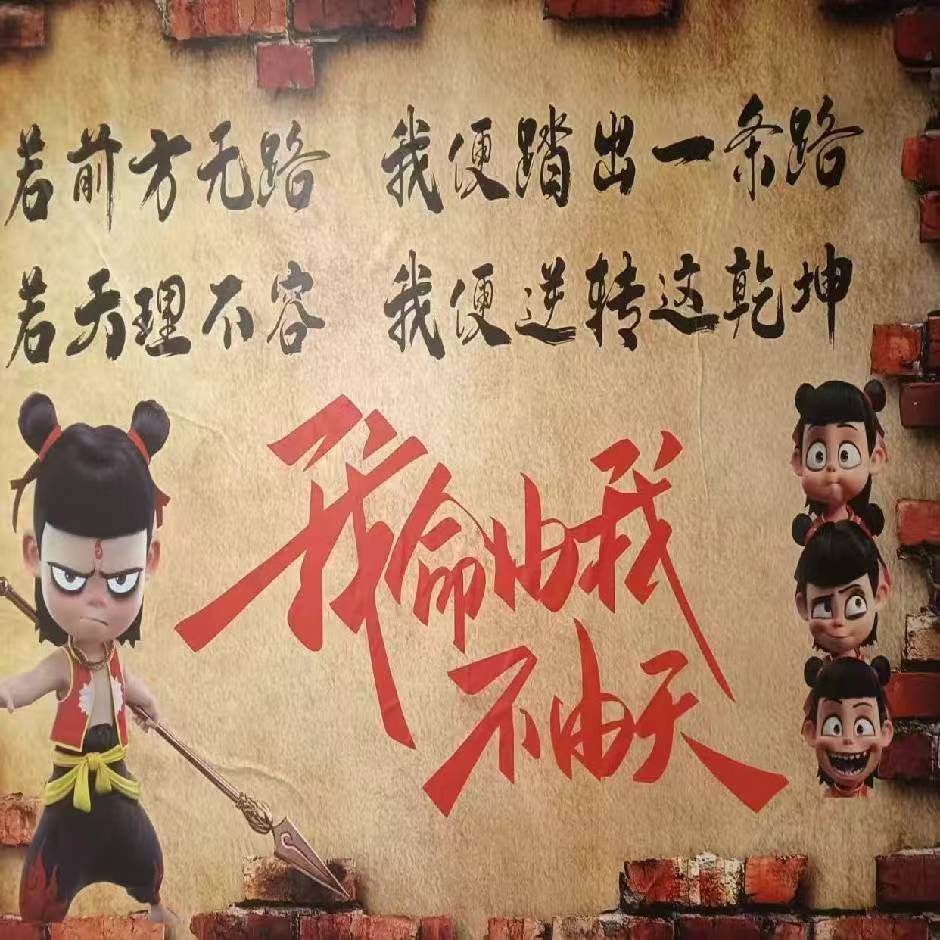 若前方无路 我便踏出一条路
若天理不容 我便逆转这乾坤
我命由我
不由天